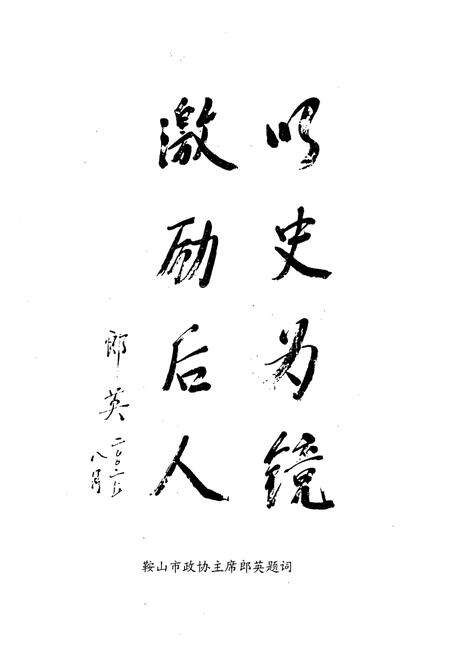 以史为镜
激励后人
郎英
八月
鞍山市政协主席郎英题词